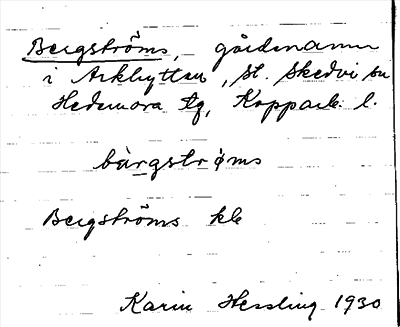 Bergströms, gårdsnamn
i Arkhyttan, St. Skedvi sn
Hedemora tg, Kopparb. l.
bàrgstrøms
Bergströms kb
Karin Hessling 1930